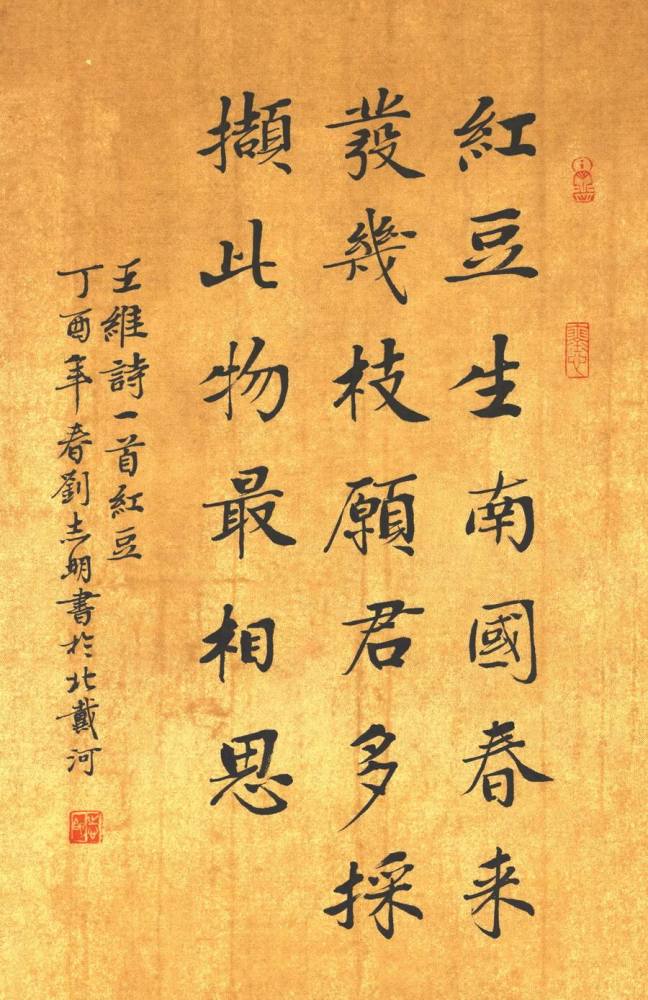 紅豆生南國春来
發幾枝願君多採
擷此物最相思
王維詩一首紅豆
丁酉年春劉志明書於北戴河